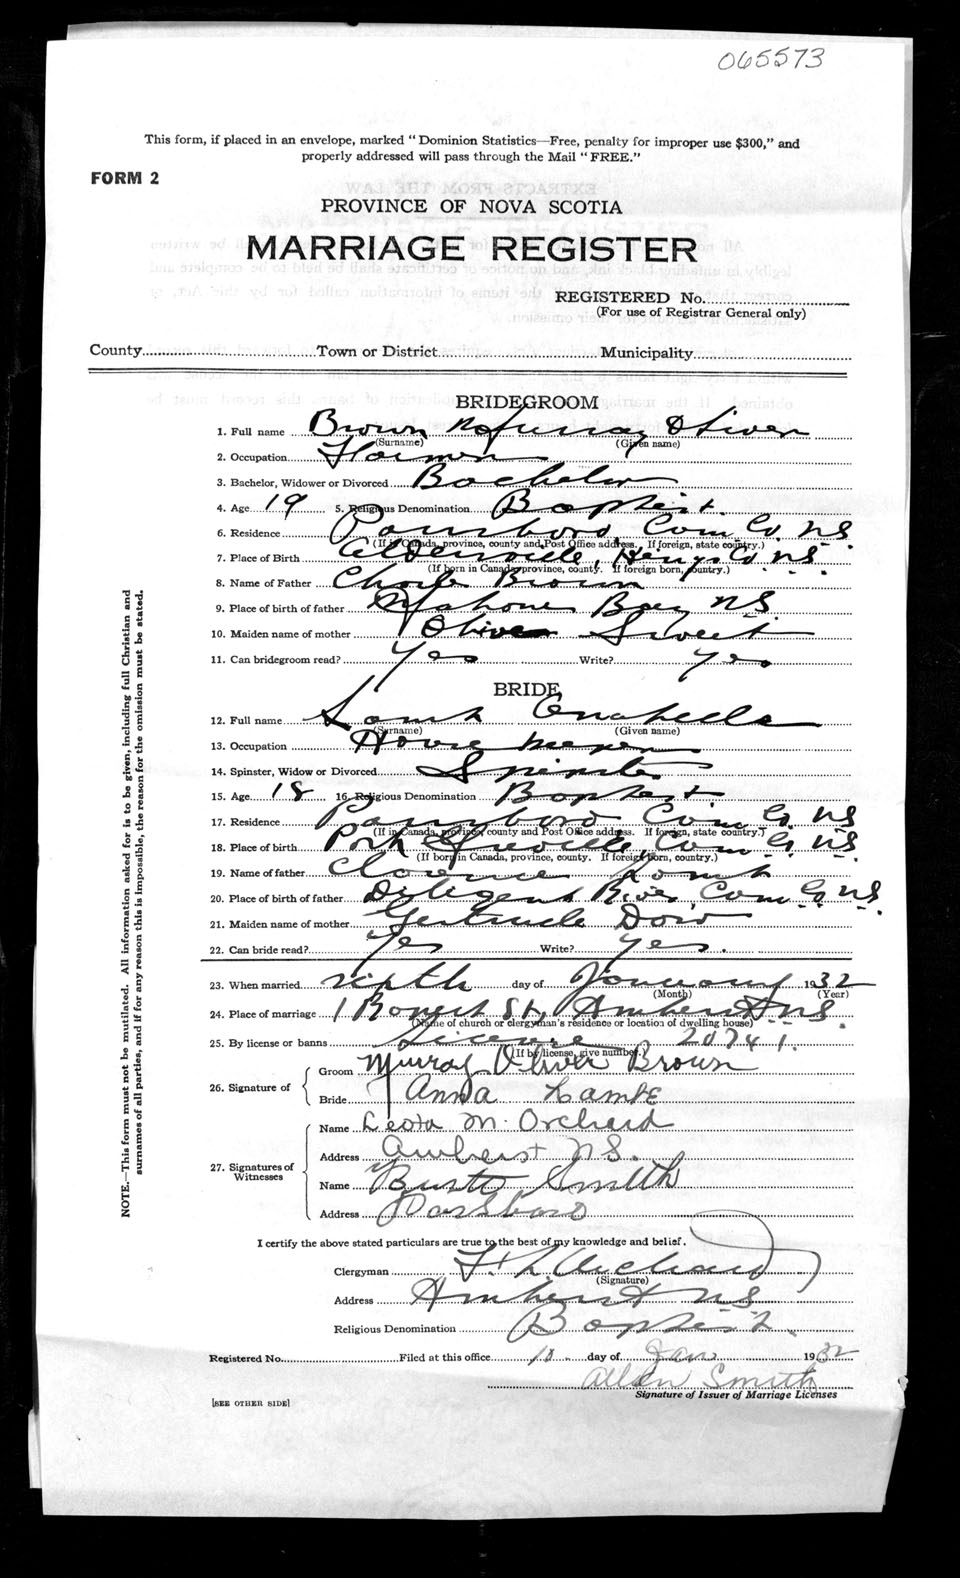 065573
This form, if placed in an envelope, marked "Dominion Statistics—Free, penalty for improper use $300," and
properly addressed will pass through the Mail "FREE."
FORM 2
PROVINCE OF NOVA SCOTIA
MARRIAGE REGISTER
REGISTERED No.
(For use of Registrar General only)
County Town or District Municipality
BRIDEGROOM
1. Full name Brown Murray Oliver
(Surname) (Given name)
2. Occupation Farmer
3. Bachelor, Widower or Divorced Bachelor
4. Age 19 5. Religious Denomination Baptist
6. Residence Parrsboro Cum Co. NS
(If in Canada, province, county and Post Office address. If foreign, state country.)
7. Place of Birth Aldersville, Co. NS.
(If born in Canada, province, county. If foreign born, country.)
8. Name of Father Charles Brown
9. Place of birth of father Mahone Bay NS.
10. Maiden name of mother Olive Sweet
11. Can bridegroom read? Yes Write? Yes
BRIDE
12. Full name Lamb
(Surname) (Given name)
13. Occupation House keeper
14. Spinster, Widow or Divorced Spinster
15. Age 18 16. Religious Denomination Baptist
17. Residence Parrsboro Cum Co. NS
(If in Canada, province, county and Post Office address. If foreign, state country.)
18. Place of birth Port Greville, Cum Co. NS.
(If born in Canada, province, county. If foreign born, country.)
19. Name of father Clarence Lamb
20. Place of birth of father Diligent River, Cum Co. NS.
21. Maiden name of mother Gertrude Dow
22. Can bride read? Yes Write? Yes.
23. When married day of January 1932
(Month) (Year)
24. Place of marriage 1 Rupert St, Amherst NS.
(Name of church or clergyman's residence or location of dwelling house)
25. By license or banns License 20741.
(If by license, give number.)
26. Signature of
Groom Murray Oliver Brown
Bride Anna Lambe
27. Signatures of Witnesses
Name Leota M. Orchard
Address Amherst N.S.
Name Smith
Address Parrsboro
I certify the above stated particulars are true to the best of my knowledge and belief.
Clergyman Orchard
(Signature)
Address Amherst NS
Religious Denomination Baptist.
Registered No. Filed at this office 10 day of Jan 1932
Allan Smith
Signature of Issuer of Marriage Licenses
[SEE OTHER SIDE]
NOTE.—This form must not be mutilated. All information asked for is to be given, including full Christian and
surnames of all parties, and if for any reason this is impossible, the reason for the omission must be stated.